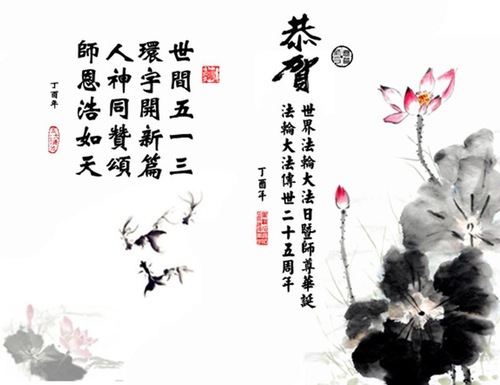 恭賀
世界法輪大法日暨師尊華誕
法輪大法傳世二十五周年
丁酉年
世間五一三
環宇開新篇
人神同贊頌
師恩浩如天
丁酉年